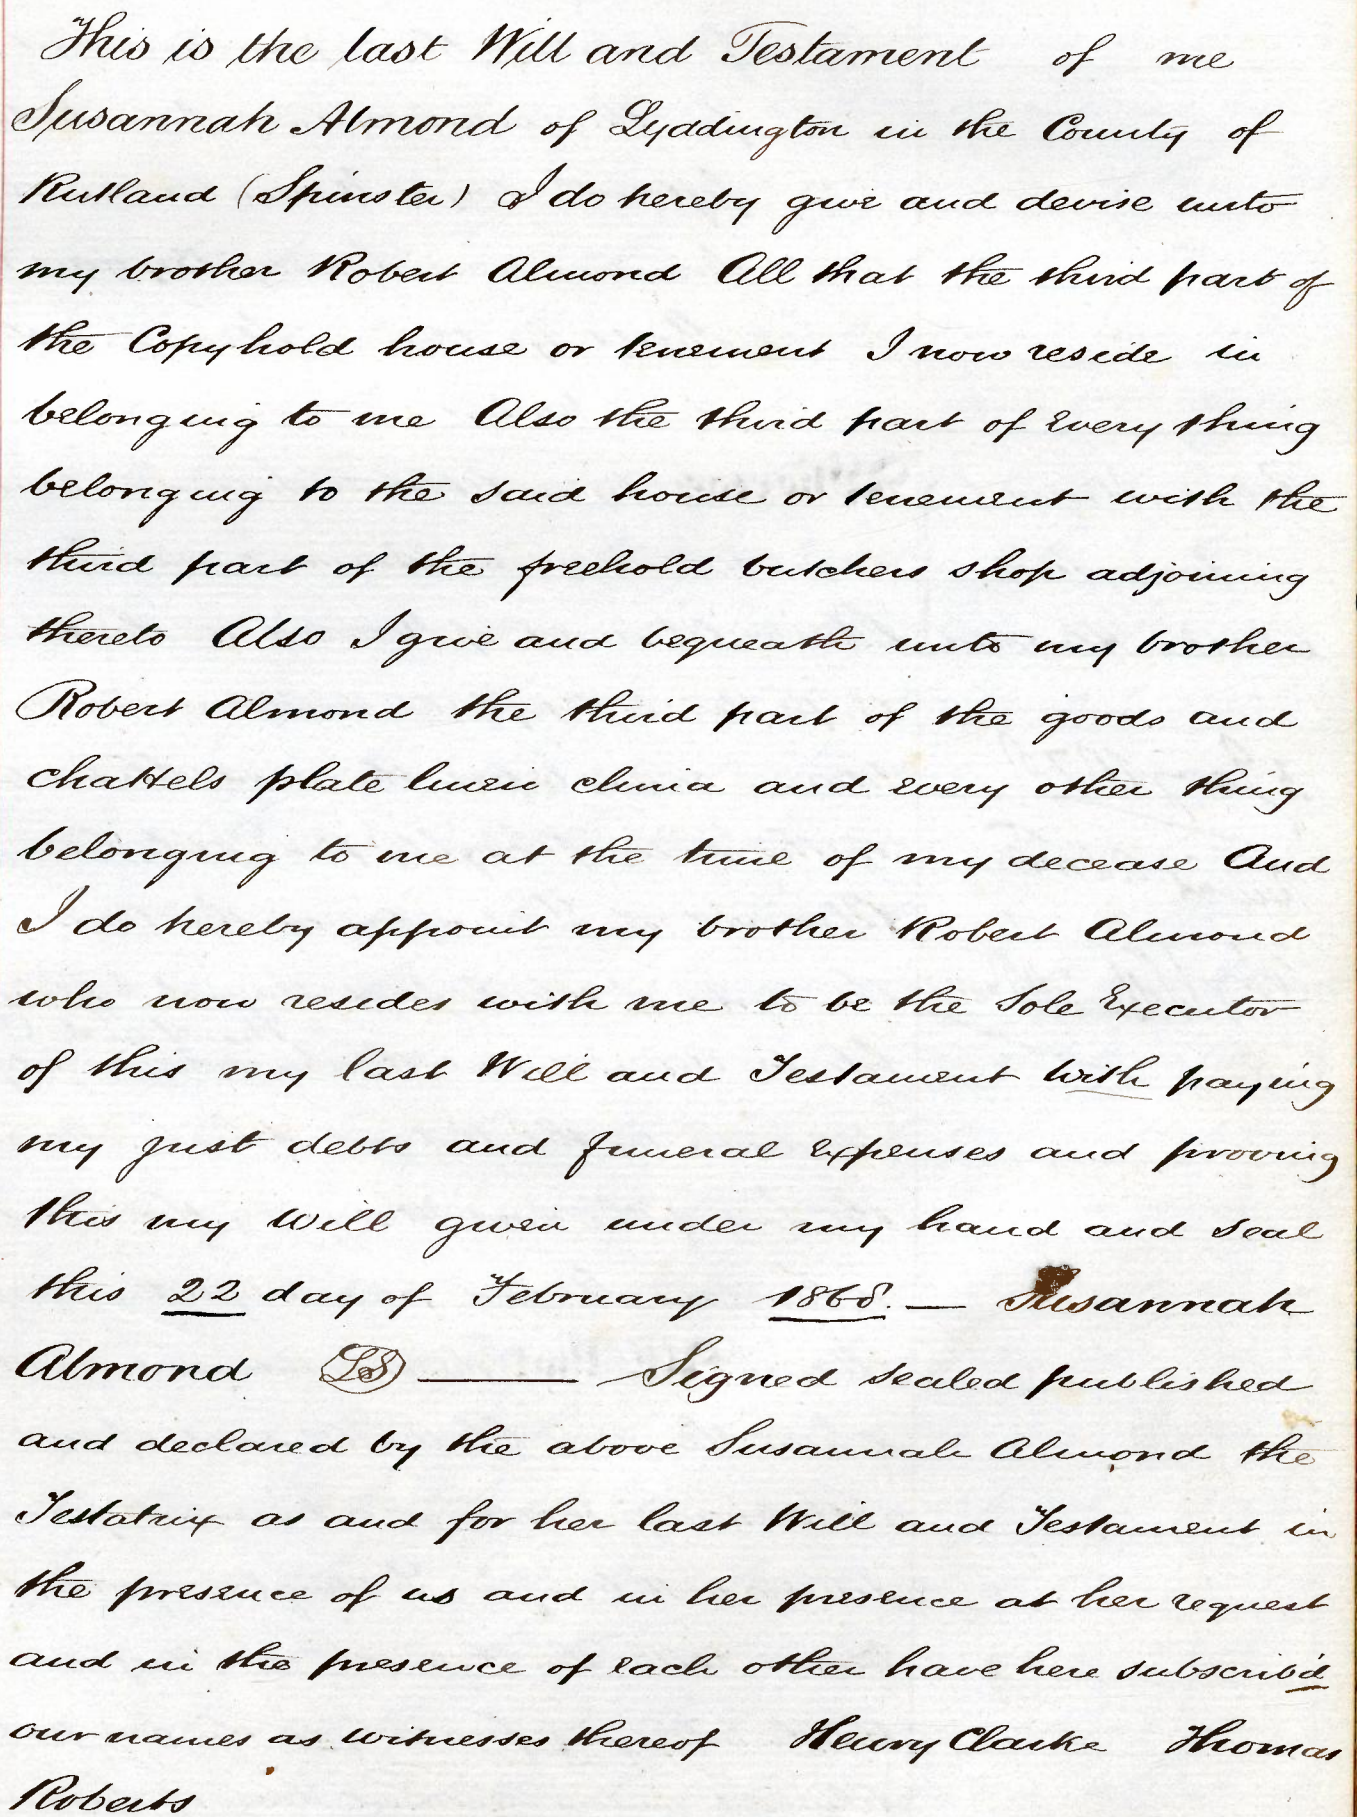 This is the last Will and Testament of me
Susannah Almond of Lyddington in the County of
Rutland (Spinster) I do hereby give and devise unto
my brother Robert Almond All that the third part of
the Copyhold house or tenement I now reside in
belonging to me Also the third part of every thing
belonging to the said house or tenement with the
third part of the freehold butchers shop adjoining
thereto Also I give and bequeath unto my brother
Robert Almond the third part of the goods and
chattels plate linen china and every other thing
belonging to me at the time of my decease And
I do hereby appoint my brother Robert Almond
who now resides with me to be the Sole Executor
of this my last Will and Testament with paying
my just debts and funeral expenses and prooving
this my Will given under my hand and seal
this 22 day of February 1868. — Susannah
Almond LS — Signed sealed published
and declared by the above Susannah Almond the
Testatrix as and for her last Will and Testament in
the presence of us and in her presence at her request
and in the presence of each other have here subscrib'd
our names as witnesses thereof Henry Clarke Thomas
Roberts